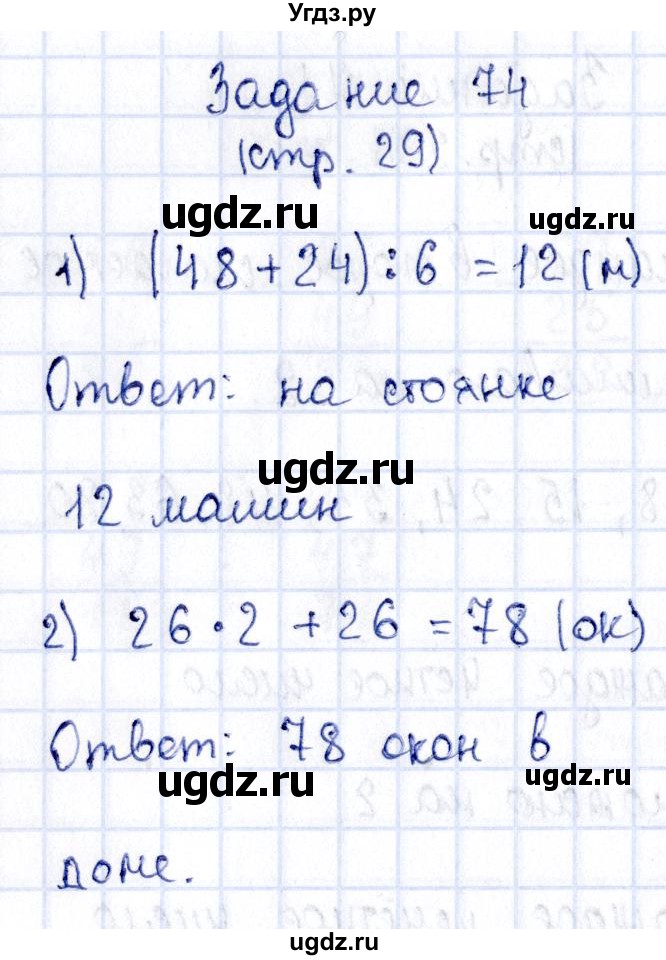 Угдз.ру
Задание 74
(стр. 29)
ugdz.ru ugdz.ru
1) (48+24):6 = 12 (м)
Ответ: на стоянке
ugdz.ru
12 машин
2) 26·2 +26 = 78 (ок)
Ответ: 78 окон в
ugdz.ru ugdz.ru
доме.
ugdz.ru